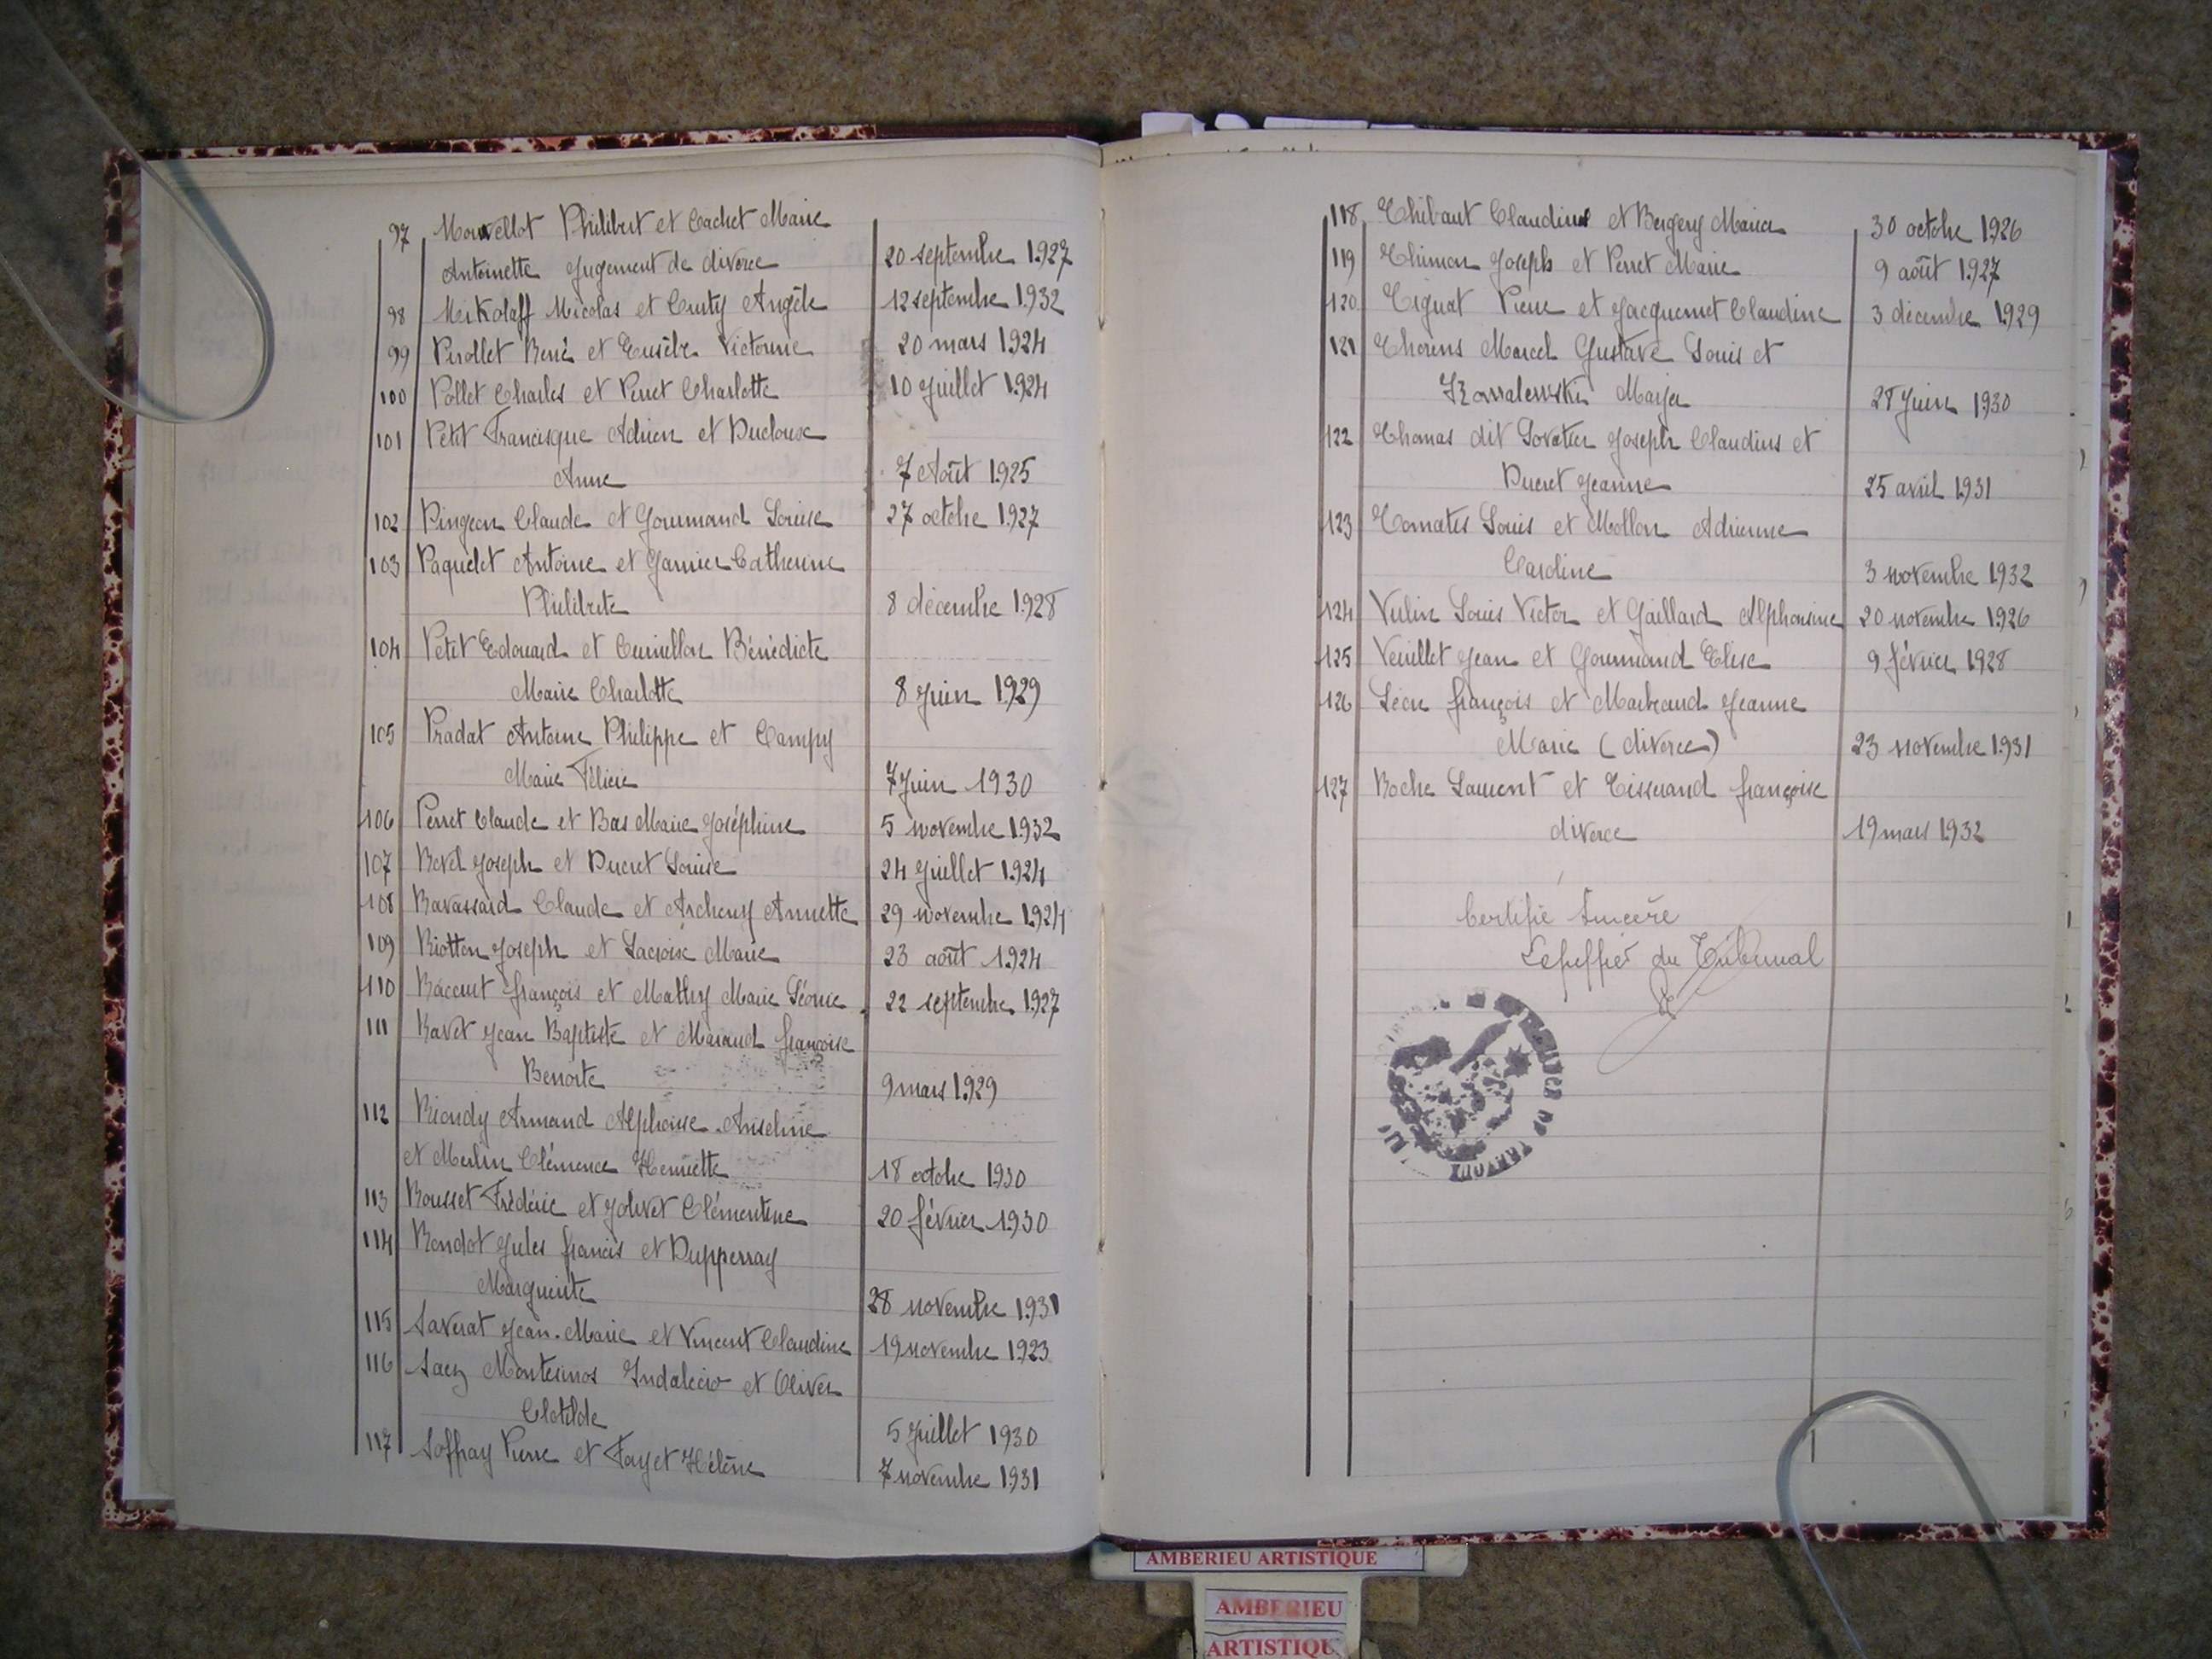 97 Mouvellot Philibert et Cachet Marie
Antoinette Jugement de divorce 20 septembre 1927
98 Nicolas et Angèle 12 septembre 1932
99 Pirollet René et Eusèbe Victorine 20 mars 1924
100 Pollet Charles et Perret Charlotte 10 Juillet 1924
101 Petit Francisque Adrien et Ducloux
Anne 7 Août 1925
102 Pingeon Claude et Gourmand Louise 27 octobre 1927
103 Paquelet Antoine et Garnier Catherine
Philiberte 8 décembre 1928
104 Petit Edouard et Curvillon Bénédicte
Marie Charlotte 8 Juin 1929
105 Pradat Antoine Philippe et Campy
Marie Félicie 7 Juin 1930
106 Perret Claude et Bas Marie Joséphine 5 novembre 1932
107 Revel Joseph et Ducret Louise 24 Juillet 1924
108 Ravassard Claude et Archeny Annette 29 novembre 1924
109 Riotton Joseph et Lacroix Marie 23 août 1924
110 Raccurt françois et Mathy Marie Léonie 22 septembre 1927
111 Ravet Jean Baptiste et Maraud françoise
Benoite 9 mars 1929
112 Riondy Armand Alphonse Anselme
et Merlin Clémence Henriette 18 octobre 1930
113 Rousset Frédéric et Jolivet Clémentine 20 février 1930
114 Rondot Jules francis et Dupperray
Marguerite 28 novembre 1931
115 Saverat Jean-Marie et Vincent Claudine 19 novembre 1923
116 Saez Montesinos Indalecio et Oliver
Clotilde 5 Juillet 1930
117 Soffray Pierre et Fayet Hélène 7 novembre 1931
118 Thibaut Claudius et Bergery Maria 30 octobre 1926
119 Thimon Joseph et Perret Marie 9 août 1927
120 Tignat Pierre et Jacquemet Claudine 3 décembre 1929
121 Thorens Marcel Gustave Louis et
Kowalewski Marja 28 Juin 1930
122 Thomas dit Lovatier Joseph Claudius et
Ducret Jeanne 25 avril 1931
123 Tomatis Louis et Mollon Adrienne
Caroline 3 novembre 1932
124 Vulin Louis Victor et Gaillard Alphonsine 20 novembre 1926
125 Veuillet Jean et Gourmand Elise 9 février 1928
126 Léon françois et Marbraud Jeanne
Marie (divorce) 23 novembre 1931
127 Roche Laurent et Tisserand françoise
divorce 19 mars 1932
Certifié Sincère
Le Greffier du Tribunal
AMBERIEU ARTISTIQUE
AMBERIEU
ARTISTIQU